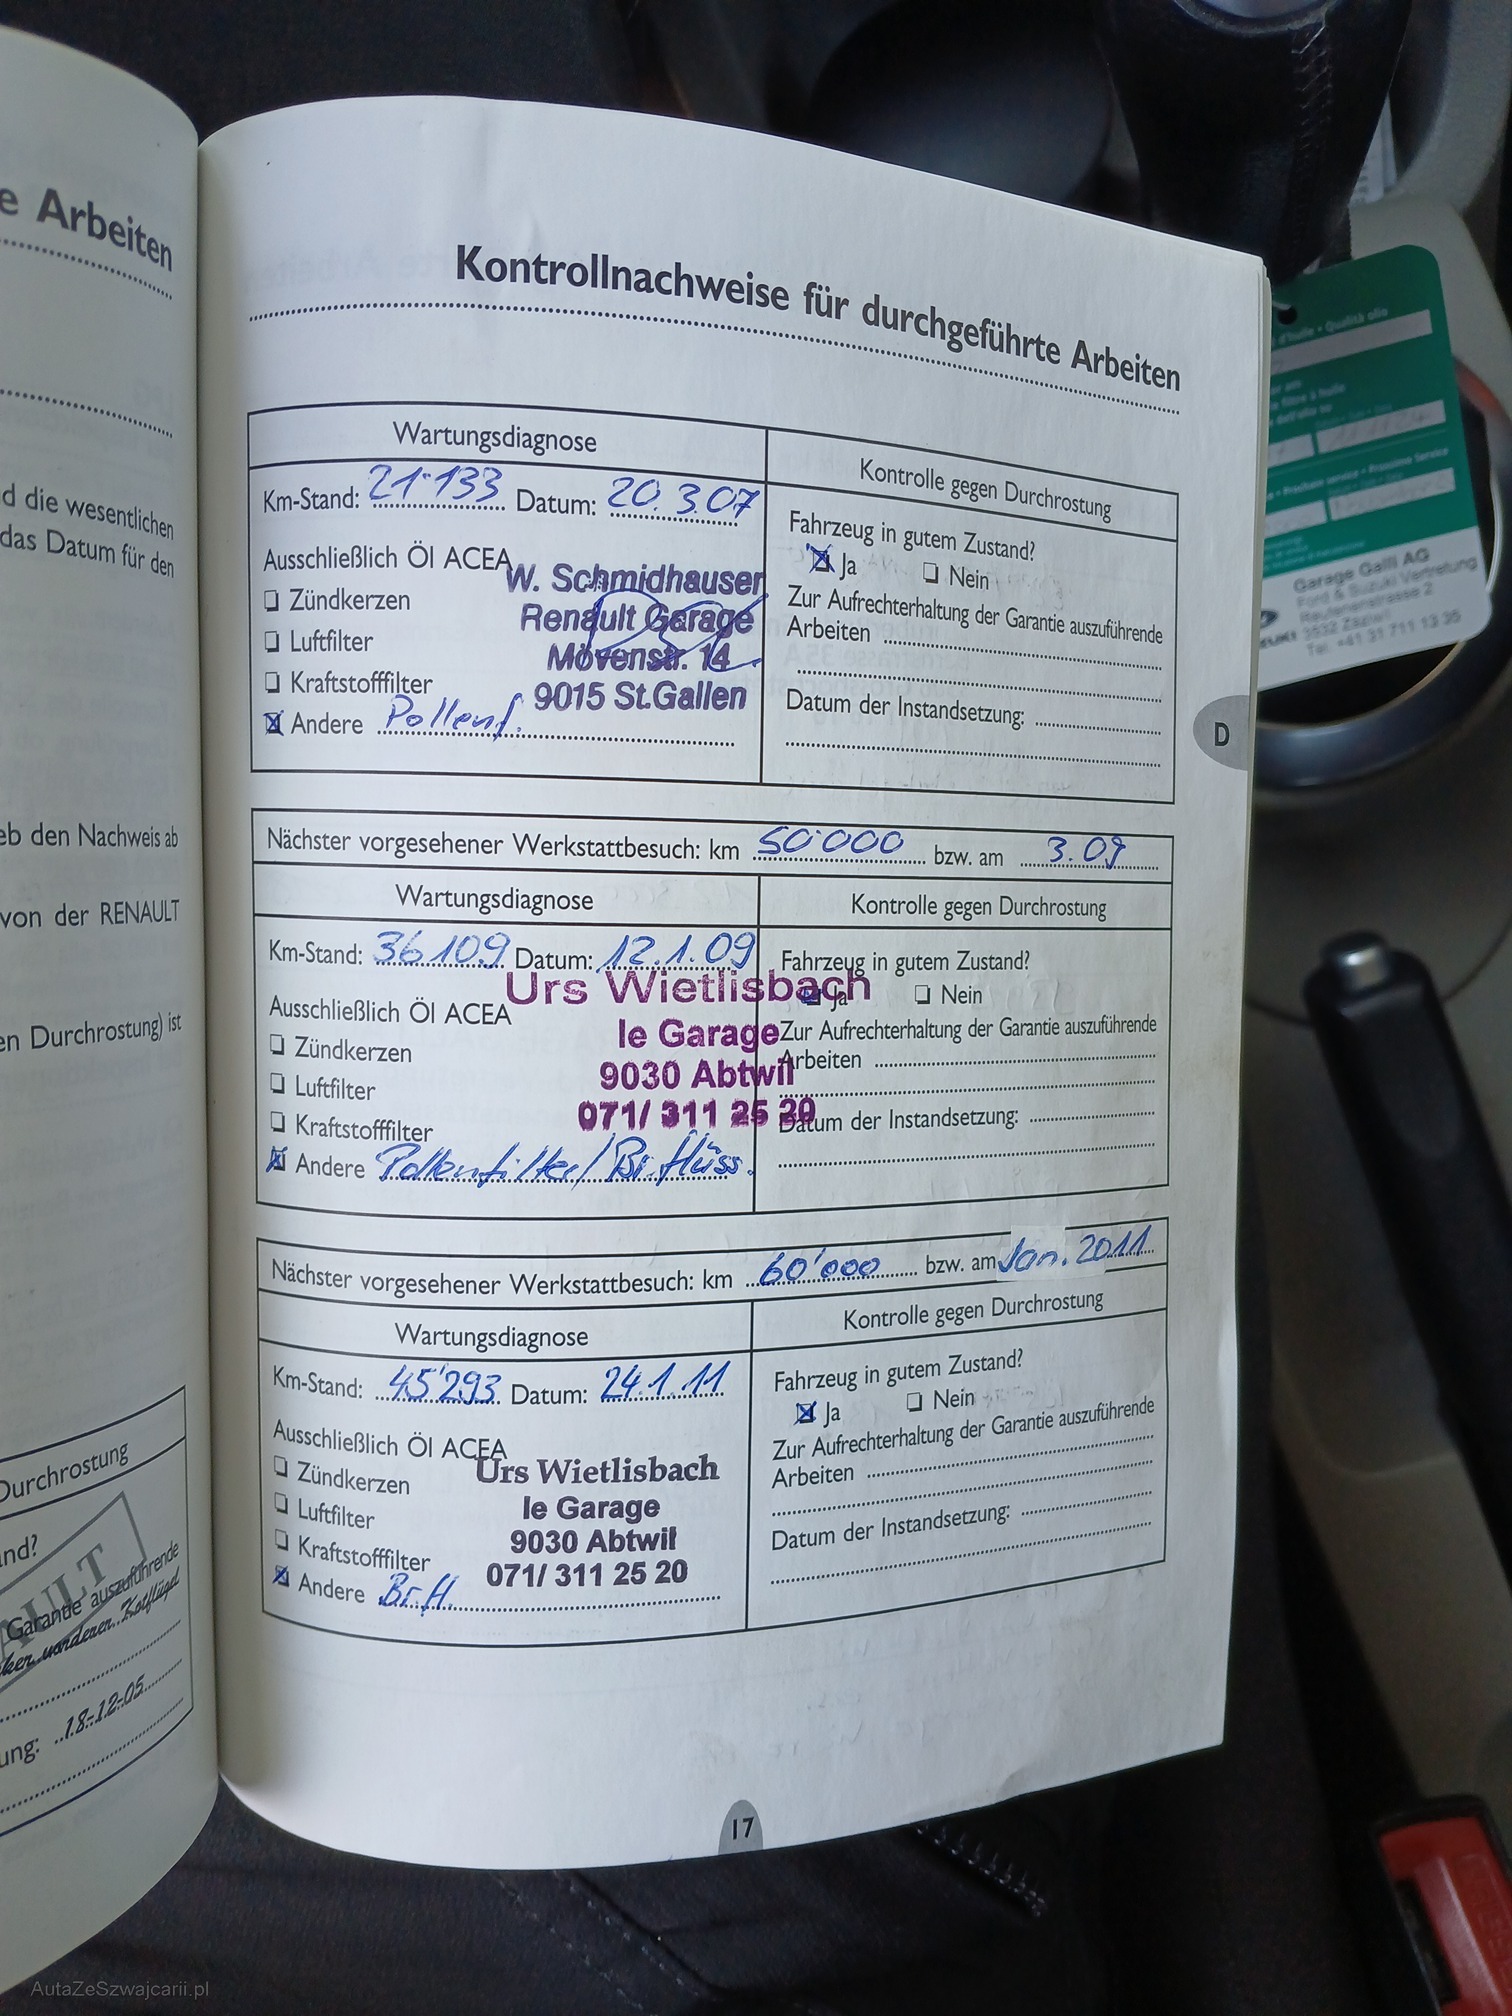 e Arbeiten
d die wesentlichen
das Datum für den
eb den Nachweis ab
von der RENAULT
en Durchrostung) ist
Durchrostung
and?
AULT
Garantie auszuführende
vorderen Kotflügel
ung: 18-12-05
Kontrollnachweise für durchgeführte Arbeiten
Wartungsdiagnose
Kontrolle gegen Durchrostung
Km-Stand: 21'133 Datum: 20.3.07
Fahrzeug in gutem Zustand?
Ja Nein
Ausschließlich Öl ACEA
Zündkerzen
Luftfilter
Kraftstofffilter
Andere Pollenf.
W. Schmidhauser
Renault Garage
Mövenstr. 14
9015 St.Gallen
Zur Aufrechterhaltung der Garantie auszuführende
Arbeiten
Datum der Instandsetzung:
Nächster vorgesehener Werkstattbesuch: km 50'000 bzw. am 3.09
Wartungsdiagnose
Kontrolle gegen Durchrostung
Km-Stand: 36109 Datum: 12.1.09
Fahrzeug in gutem Zustand?
Ja Nein
Ausschließlich Öl ACEA
Zündkerzen
Luftfilter
Kraftstofffilter
Andere Pollenfilter/Br.flüss.
Urs Wietlisbach
le Garage
9030 Abtwil
071/ 311 25 20
Zur Aufrechterhaltung der Garantie auszuführende
Arbeiten
Datum der Instandsetzung:
Nächster vorgesehener Werkstattbesuch: km 60'000 bzw. am Jan. 2011
Wartungsdiagnose
Kontrolle gegen Durchrostung
Km-Stand: 45'293 Datum: 24.1.11
Fahrzeug in gutem Zustand?
Ja Nein
Ausschließlich Öl ACEA
Zündkerzen
Luftfilter
Kraftstofffilter
Andere Br.fl.
Urs Wietlisbach
le Garage
9030 Abtwil
071/ 311 25 20
Zur Aufrechterhaltung der Garantie auszuführende
Arbeiten
Datum der Instandsetzung:
17
D
d'huile • Qualità olio
Prochain service • Prossimo Service
Garage Galli AG
Ford & Suzuki Vertretung
3532 Zäziwil
Tel. +41 31 711 13 35
AutaZeSzwajcarii.pl